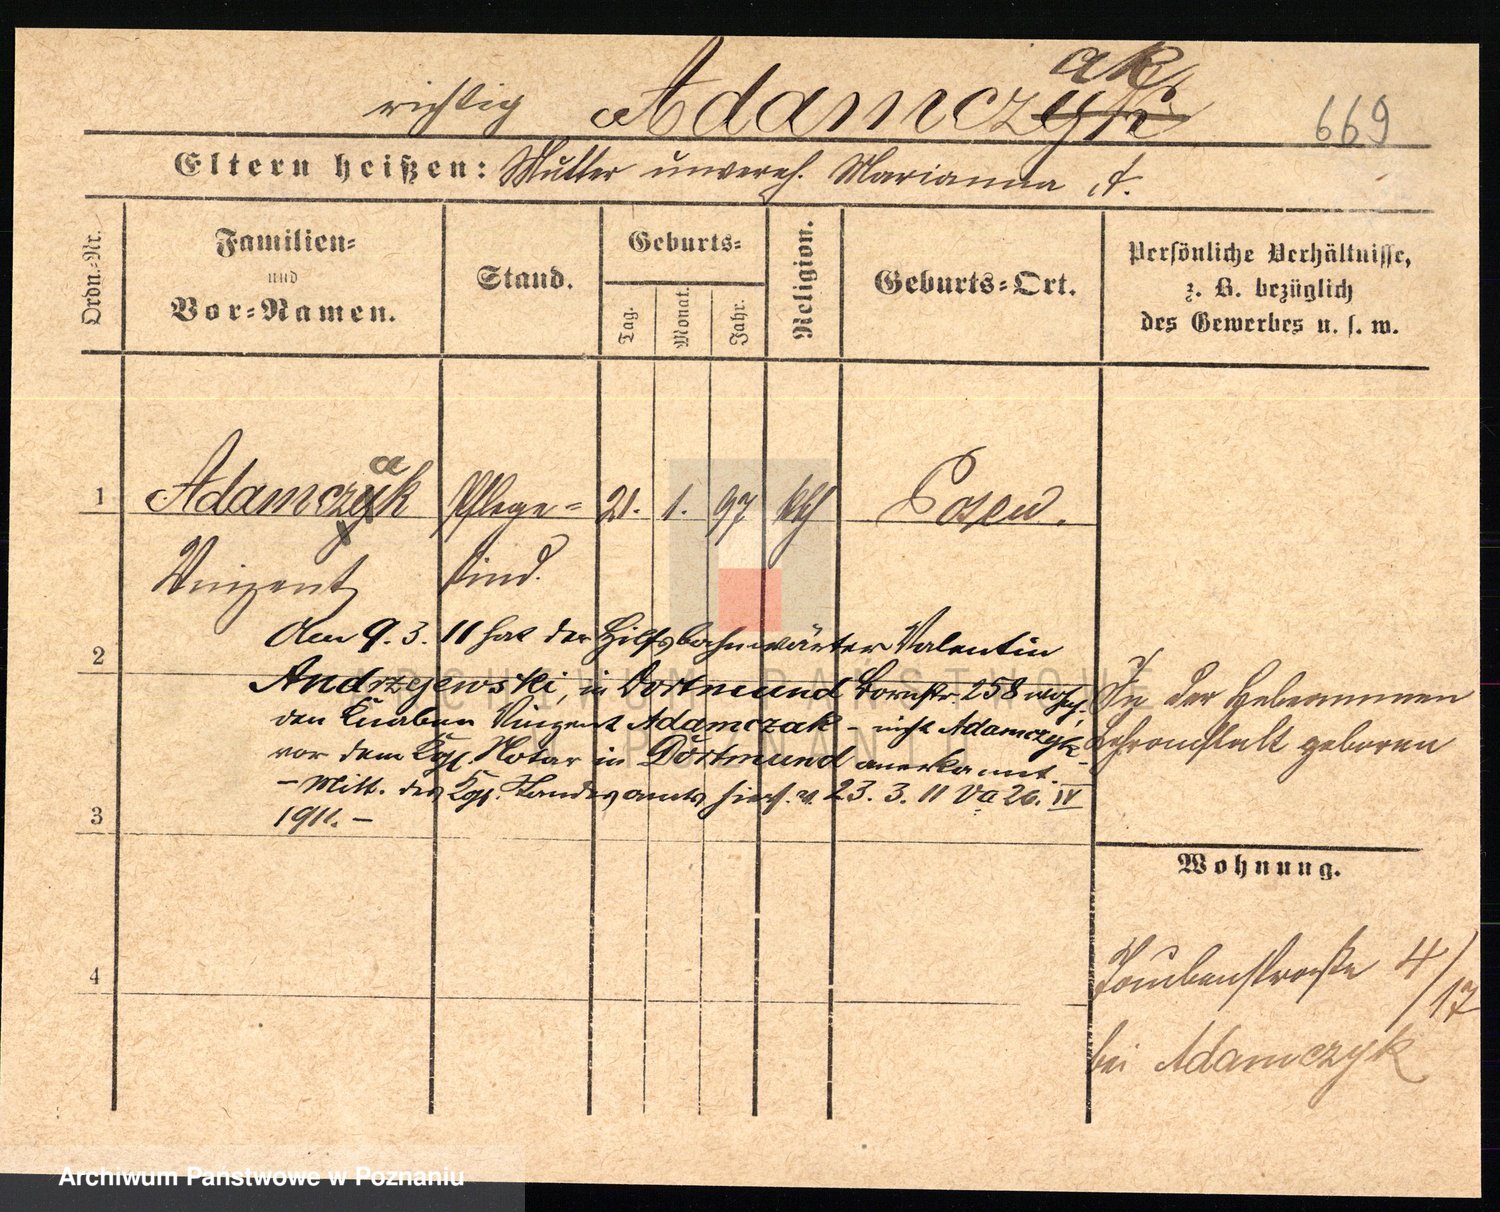 ak
richtig Adamczyk 669
Eltern heißen: Mutter unvereh. Marianna A.
Ordn.-Nr.
Familien-
und
Vor-Namen.
Stand.
Geburts-
Tag.
Monat.
Jahr.
Religion.
Geburts-Ort.
Persönliche Verhältnisse,
z. B. bezüglich
des Gewerbes u. s. w.
a
1 Adamczyk Pflege- 21. 1. 97 kth Posen.
Vinzent kind.
Am 9. 3. 11 hat der Hilfsbahnwärter Valentin
2
Andrzejewski, in Dortmund Bornstr. 258 wohnh.
den Knaben Vinzent Adamczak - nicht Adamczyk -
vor dem Kgl. Notar in Dortmund anerkannt.
- Mitt. des Kgl. Standesamts hier v. 23. 3. 11 Va 26. IV
1911. -
3
4
In der Hebammen
Lehranstalt geboren
Wohnung.
Taubenstraße 4/17
bei Adamczyk
ARCHIWUM PAŃSTWOWE
W POZNANIU
Archiwum Państwowe w Poznaniu